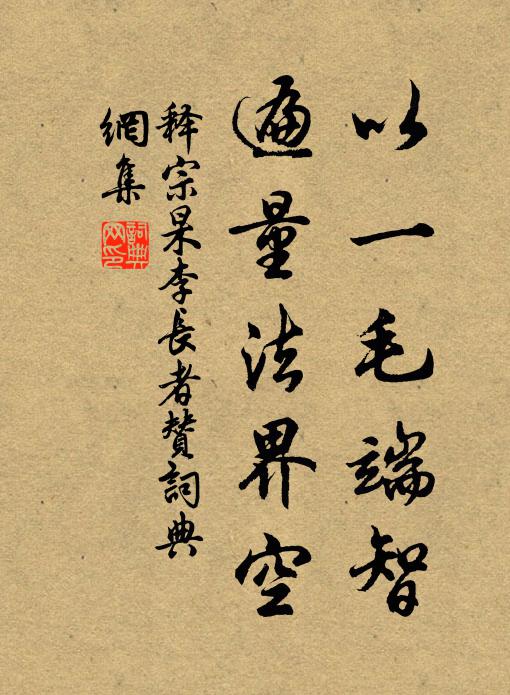 以一毛端智
遍量法界空
释宗杲李長者赞詞典
網集
詞典
网印